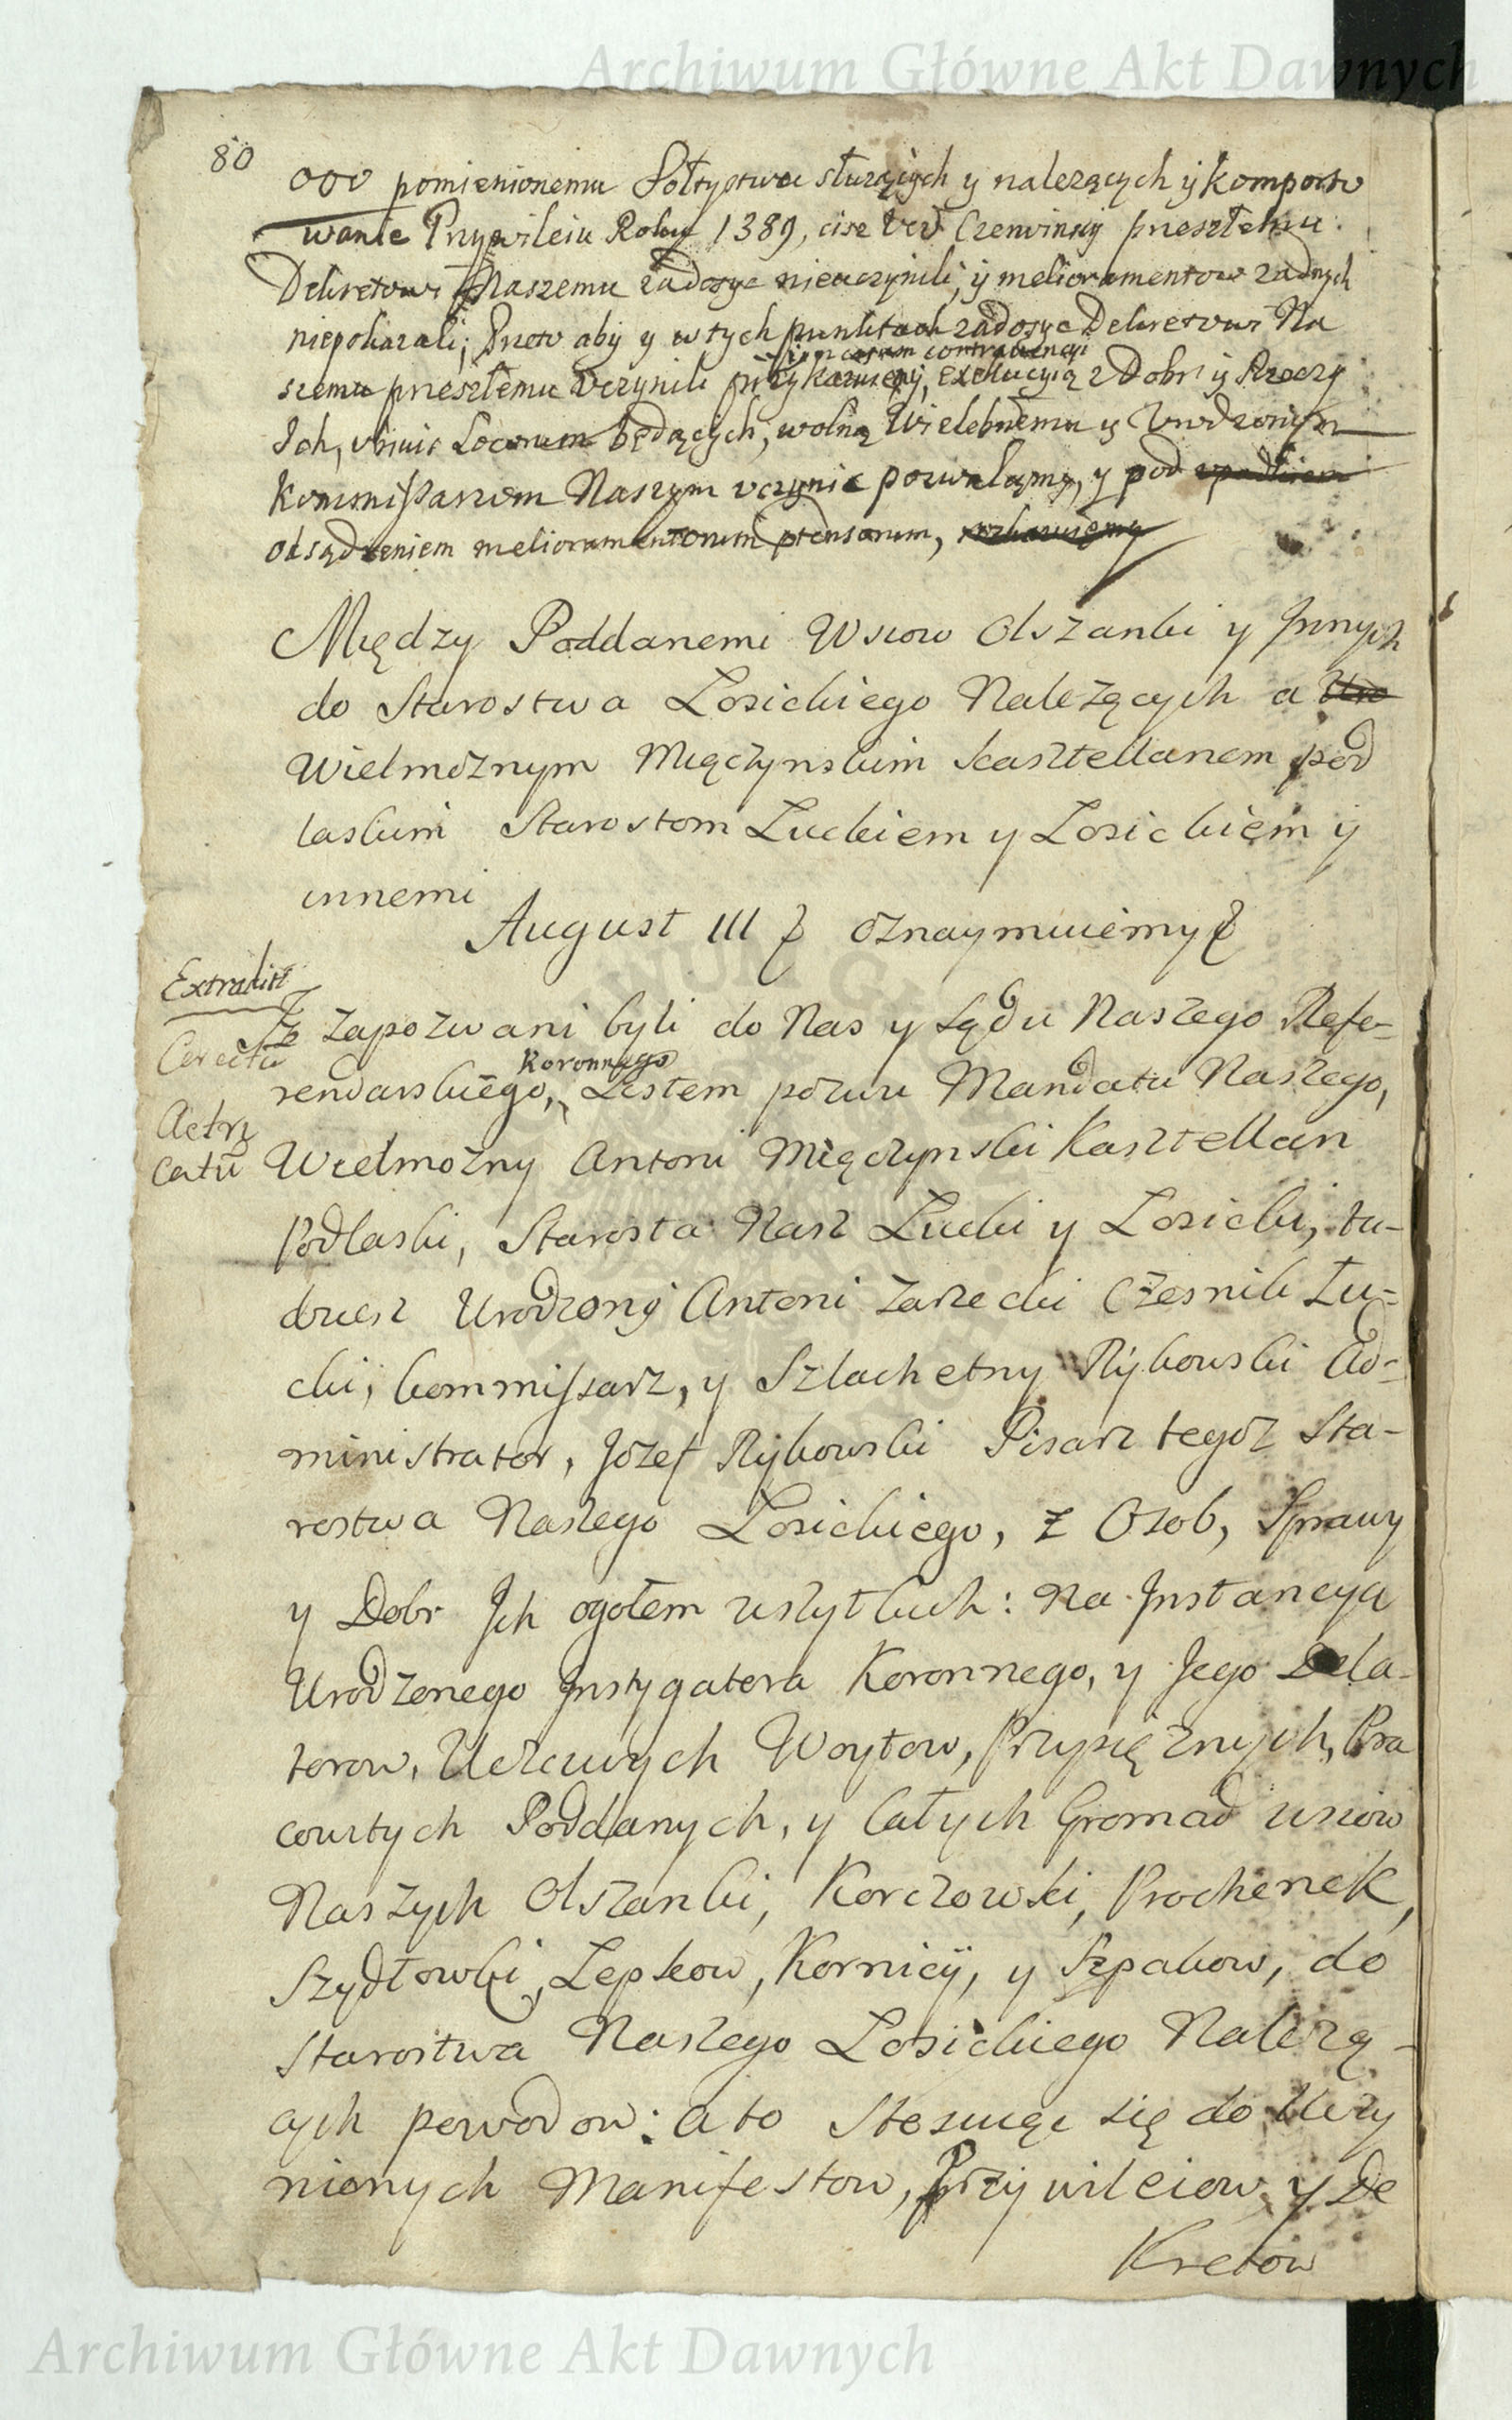 Archiwum Główne Akt Dawnych
80
pomienionemu Sołtystwu służących y nalezących ÿ komporto
wanie Przywileiu Roku 1389, ciż Czerwinscy przeszłemu
Dekretowi Naszemu zadosyc nieuczynili, ÿ melioramentow zadnych
niepokazali; Przeto aby y w tych punktach zadosyc Dekretowi Na
in casum contraventionis
szemu przeszłemu vczynili przykazuiemy, Exekucyią z Dobr ÿ Rzeczy
Ich, vbivis Locorum będących, wolną Wielebnemu y Vrodzonym
Kommissarzom Naszym vczynic pozwalamy, y pod upadkiem
odsądzeniem melioramentorum ptensorum, nakazuiemy
Między Poddanemi Wsiow Olszanki y Innych
do Starostwa Łosickiego Należących a Uro
Wielmożnym Mięczynskim kasztellanem pod
laskim Starostom Łuckiem y Łosickiem ÿ
innemi
August III oznaymuiemy
Extradit
Iż Zapozwani byli do Nas y Sądu Naszego Refe-
Correcta
Koronnego
rendarskiego, Listem pozwu Mandatu Naszego,
Wielmożny Antoni Mięczynski Kasztellan
catū
Podlaski, Starosta Nasz Łucki y Łosicki, tu-
dziesz Urodzony Antoni Zarzecki Czesnik Łu-
cki, kommissarz, y Szlachetny Rÿkowski Ad-
ministrator, Józef Rÿkowski Pisarz tegoż Sta-
rostwa Naszego Łosickiego, z Osob, Sprawy
y Dobr Ich ogołem wszytkich: Na Instancyą
Urodzonego Instygatora Koronnego, y Jego Dela-
torow, Uczciwych Woytow, Przysiężnych, Pra
cowitych Poddanych, y Całych Gromad wsiow
Naszych Olszanki, Korczowki, Prochenek,
Szydłowki, Lepkow, Kornicÿ, y Szpakow, do
Starostwa Naszego Łosickiego Należą-
cych powodow: a to Stosuiąc się do Uczy
nionych Manifestow, Przywileiow y De
Kretow
Archiwum Główne Akt Dawnych